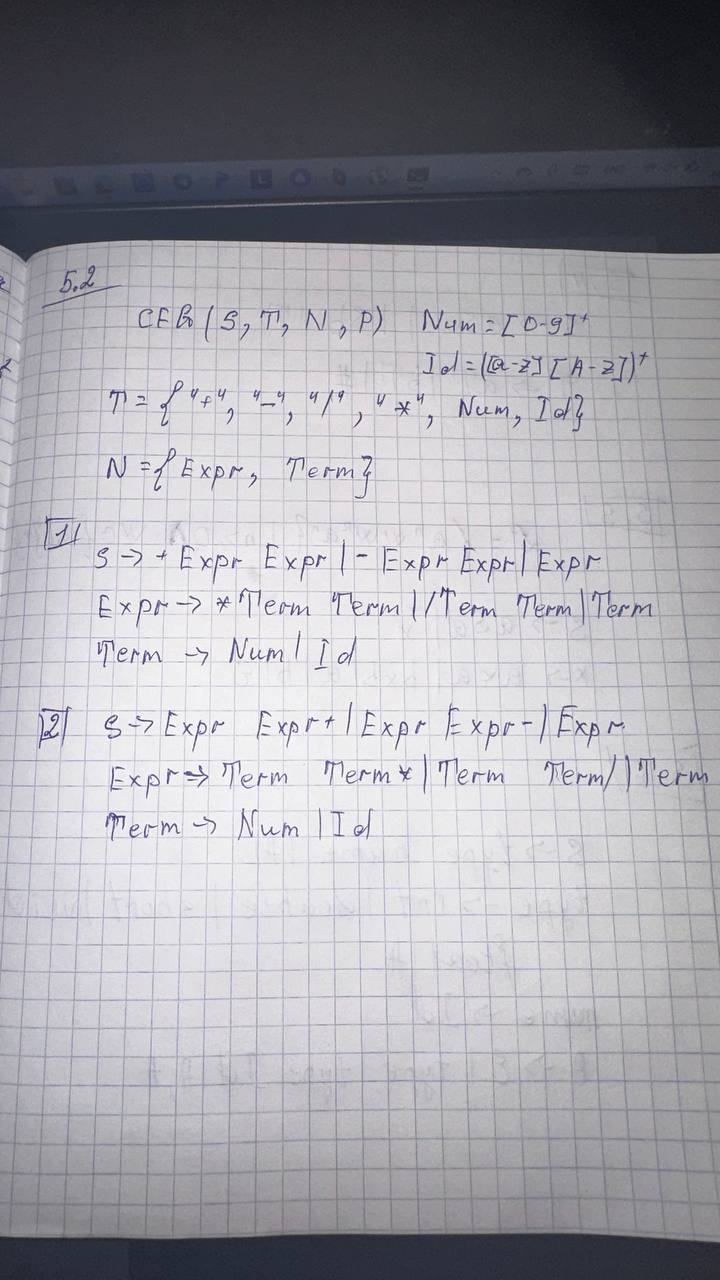 5.2
CFG (S, T, N, P) Num = [0-9]⁺
Id = ([a-z] [A-Z])⁺
T = { "+", "-", "/", "*", Num, Id}
N = { Expr, Term}
1
S → + Expr Expr | - Expr Expr | Expr
Expr → * Term Term | / Term Term | Term
Term → Num | Id
2
S → Expr Expr + | Expr Expr - | Expr
Expr → Term Term * | Term Term / | Term
Term → Num | Id